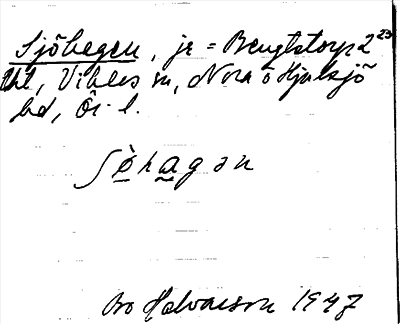 Sjöhagen, je = Bengtstorp 2 23
Uhl, Vikers sn, Nora o Hjulsjö
bd, Ör. l.
ʃö̀hagən
Bo Halvarson 1947